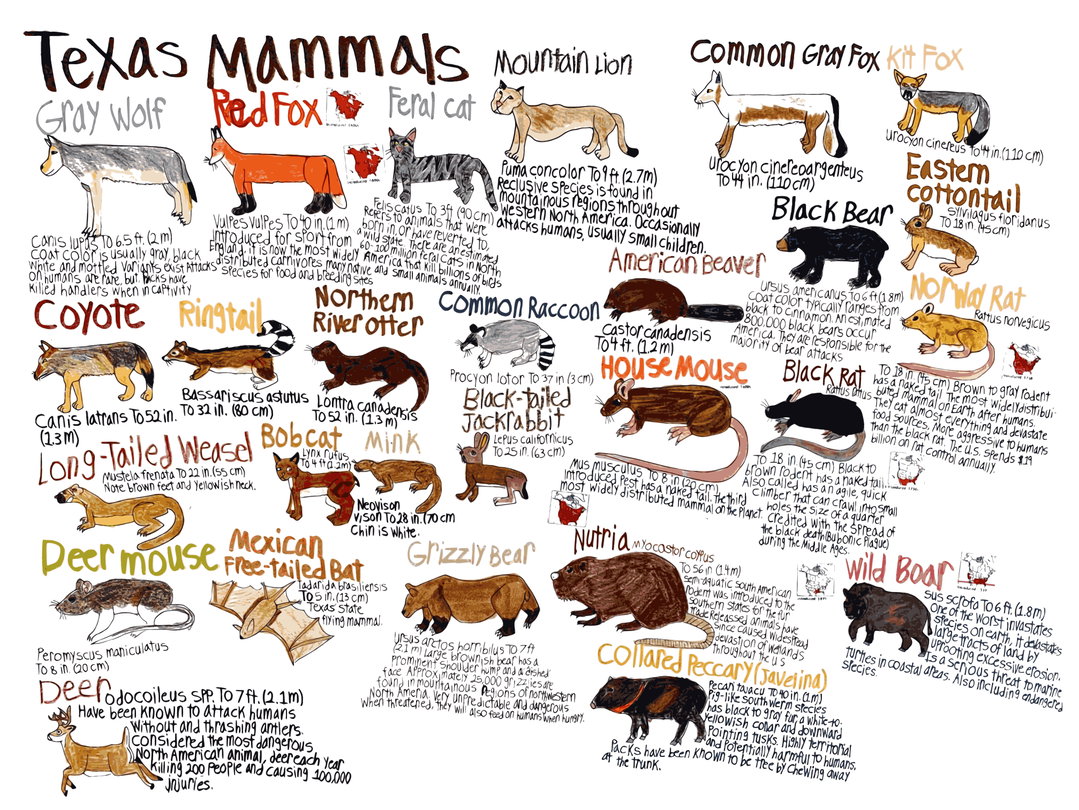 Texas Mammals
Gray Wolf
Canis lupus To 6.5 ft. (2 m)
Coat color is usually gray, black
white and mottled variants exist Attacks
on humans are rare, but packs have
killed handlers when in captivity
Red Fox
Vulpes Vulpes To 40 in. (1 m)
Introduced for sport from
England, it is now the most widely
distributed carnivores many native
species for food and breeding sites
Feral cat
Felis catus To 3 ft (90 cm)
Refers to animals that were
born in, or have reverted to,
a wild state. There are an estimated
60-100 million feral cats in North
America that kill billions of birds
and small animals annually
Mountain Lion
Puma concolor To 9 ft (2.7m)
Reclusive species is found in
mountainous regions throughout
western North America. Occasionally
attacks humans, usually small children.
Common Gray Fox
Urocyon cinereoargenteus
To 44 in. (110 cm)
Kit Fox
Urocyon cinereus To 44 in. (110 cm)
Eastern
cottontail
Sylvilagus floridanus
To 18 in. (45 cm)
Black Bear
Ursus americanus To 6 ft (1.8m)
Coat color typically ranges from
black to cinnamon. An estimated
800,000 black bears occur
America. They are responsible for the
majority of bear attacks
American Beaver
Castor canadensis
To 4 ft. (1.2m)
Norway Rat
Rattus norvegicus
To 18 in. (45 cm) Brown to gray rodent
has a naked tail. The most widely distribui-
buted mammal on Earth after humans.
They eat almost everything and devastate
food sources. More aggressive to humans
than the black rat. The U.S. spends $19
billion on rat control annually.
Coyote
Canis latrans To 52 in.
(1.3 m)
Ringtail
Bassariscus astutus
To 32 in. (80 cm)
Northern
River otter
Lontra canadensis
To 52 in. (1.3 m)
Common Raccoon
Procyon lotor To 37 in (3 cm)
Black-tailed
Jackrabbit
Lepus californicus
To 25 in. (63 cm)
House Mouse
Mus musculus To 8 in (20 cm)
Introduced Pest has a naked tail. The third
most widely distributed mammal on the Planet.
Black Rat
Rattus rattus
To 18 in. (45 cm) Black to
brown rodent has a naked tail.
Also called has an agile, quick
climber that can crawl into small
holes the size of a quarter
Credited with the spread of
the black death (Bubonic Plague)
during the Middle Ages.
Long-Tailed Weasel
Mustela frenata To 22 in. (55 cm)
Note brown feet and yellowish neck.
Bobcat
Lynx rufus
To 4 ft (1.2m)
Mink
Neovison
vison To 28 in. (70 cm
Chin is white.
Deer mouse
Peromyscus maniculatus
To 8 in (20 cm)
Mexican
Free-tailed Bat
Tadarida brasiliensis
To 5 in. (13 cm)
Texas State
flying mammal.
Grizzly Bear
Ursus arctos horribilus To 7 ft
(2.1 m) Large brownish bear has a
prominent shoulder hump and a dished
face. Approximately 25,000 grizzlies are
found in mountainous regions of northwestern
North America. Very unpredictable and dangerous
when threatened, they will also feed on humans when hungry.
Nutria
Myocastor coypus
To 56 in (1.4 m)
semi-aquatic south American
rodent was introduced to the
southern States for the fur
trade Releasaed animals have
since caused widespread
devastion of wetlands
throughout the U.S
Wild Boar
sus scrofa To 6 ft (1.8m)
One of the worst invastates
species on earth, it devastates
large tracts of land by
uprooting excessive erosion.
Is a serious threat to marine
turtles in coastal areas. Also including endangered
species.
Collared Peccary (Javelina)
Pecari tajacu To 40 in. (1 m)
Pig-like southwerm species
has black to gray fur, a white-to-
yellowish collar and downward
Pointing tusks. Highly territorial
and potentially harmful to humans,
Packs have been known to be ttee by chewing away
at the trunk.
Deer
Odocoileus spp. To 7 ft. (2.1m)
Have been known to attack humans
without and thrashing antlers.
Considered the most dangerous
North American animal, deer each year
Killing 200 people and causing 100,000
injuries.